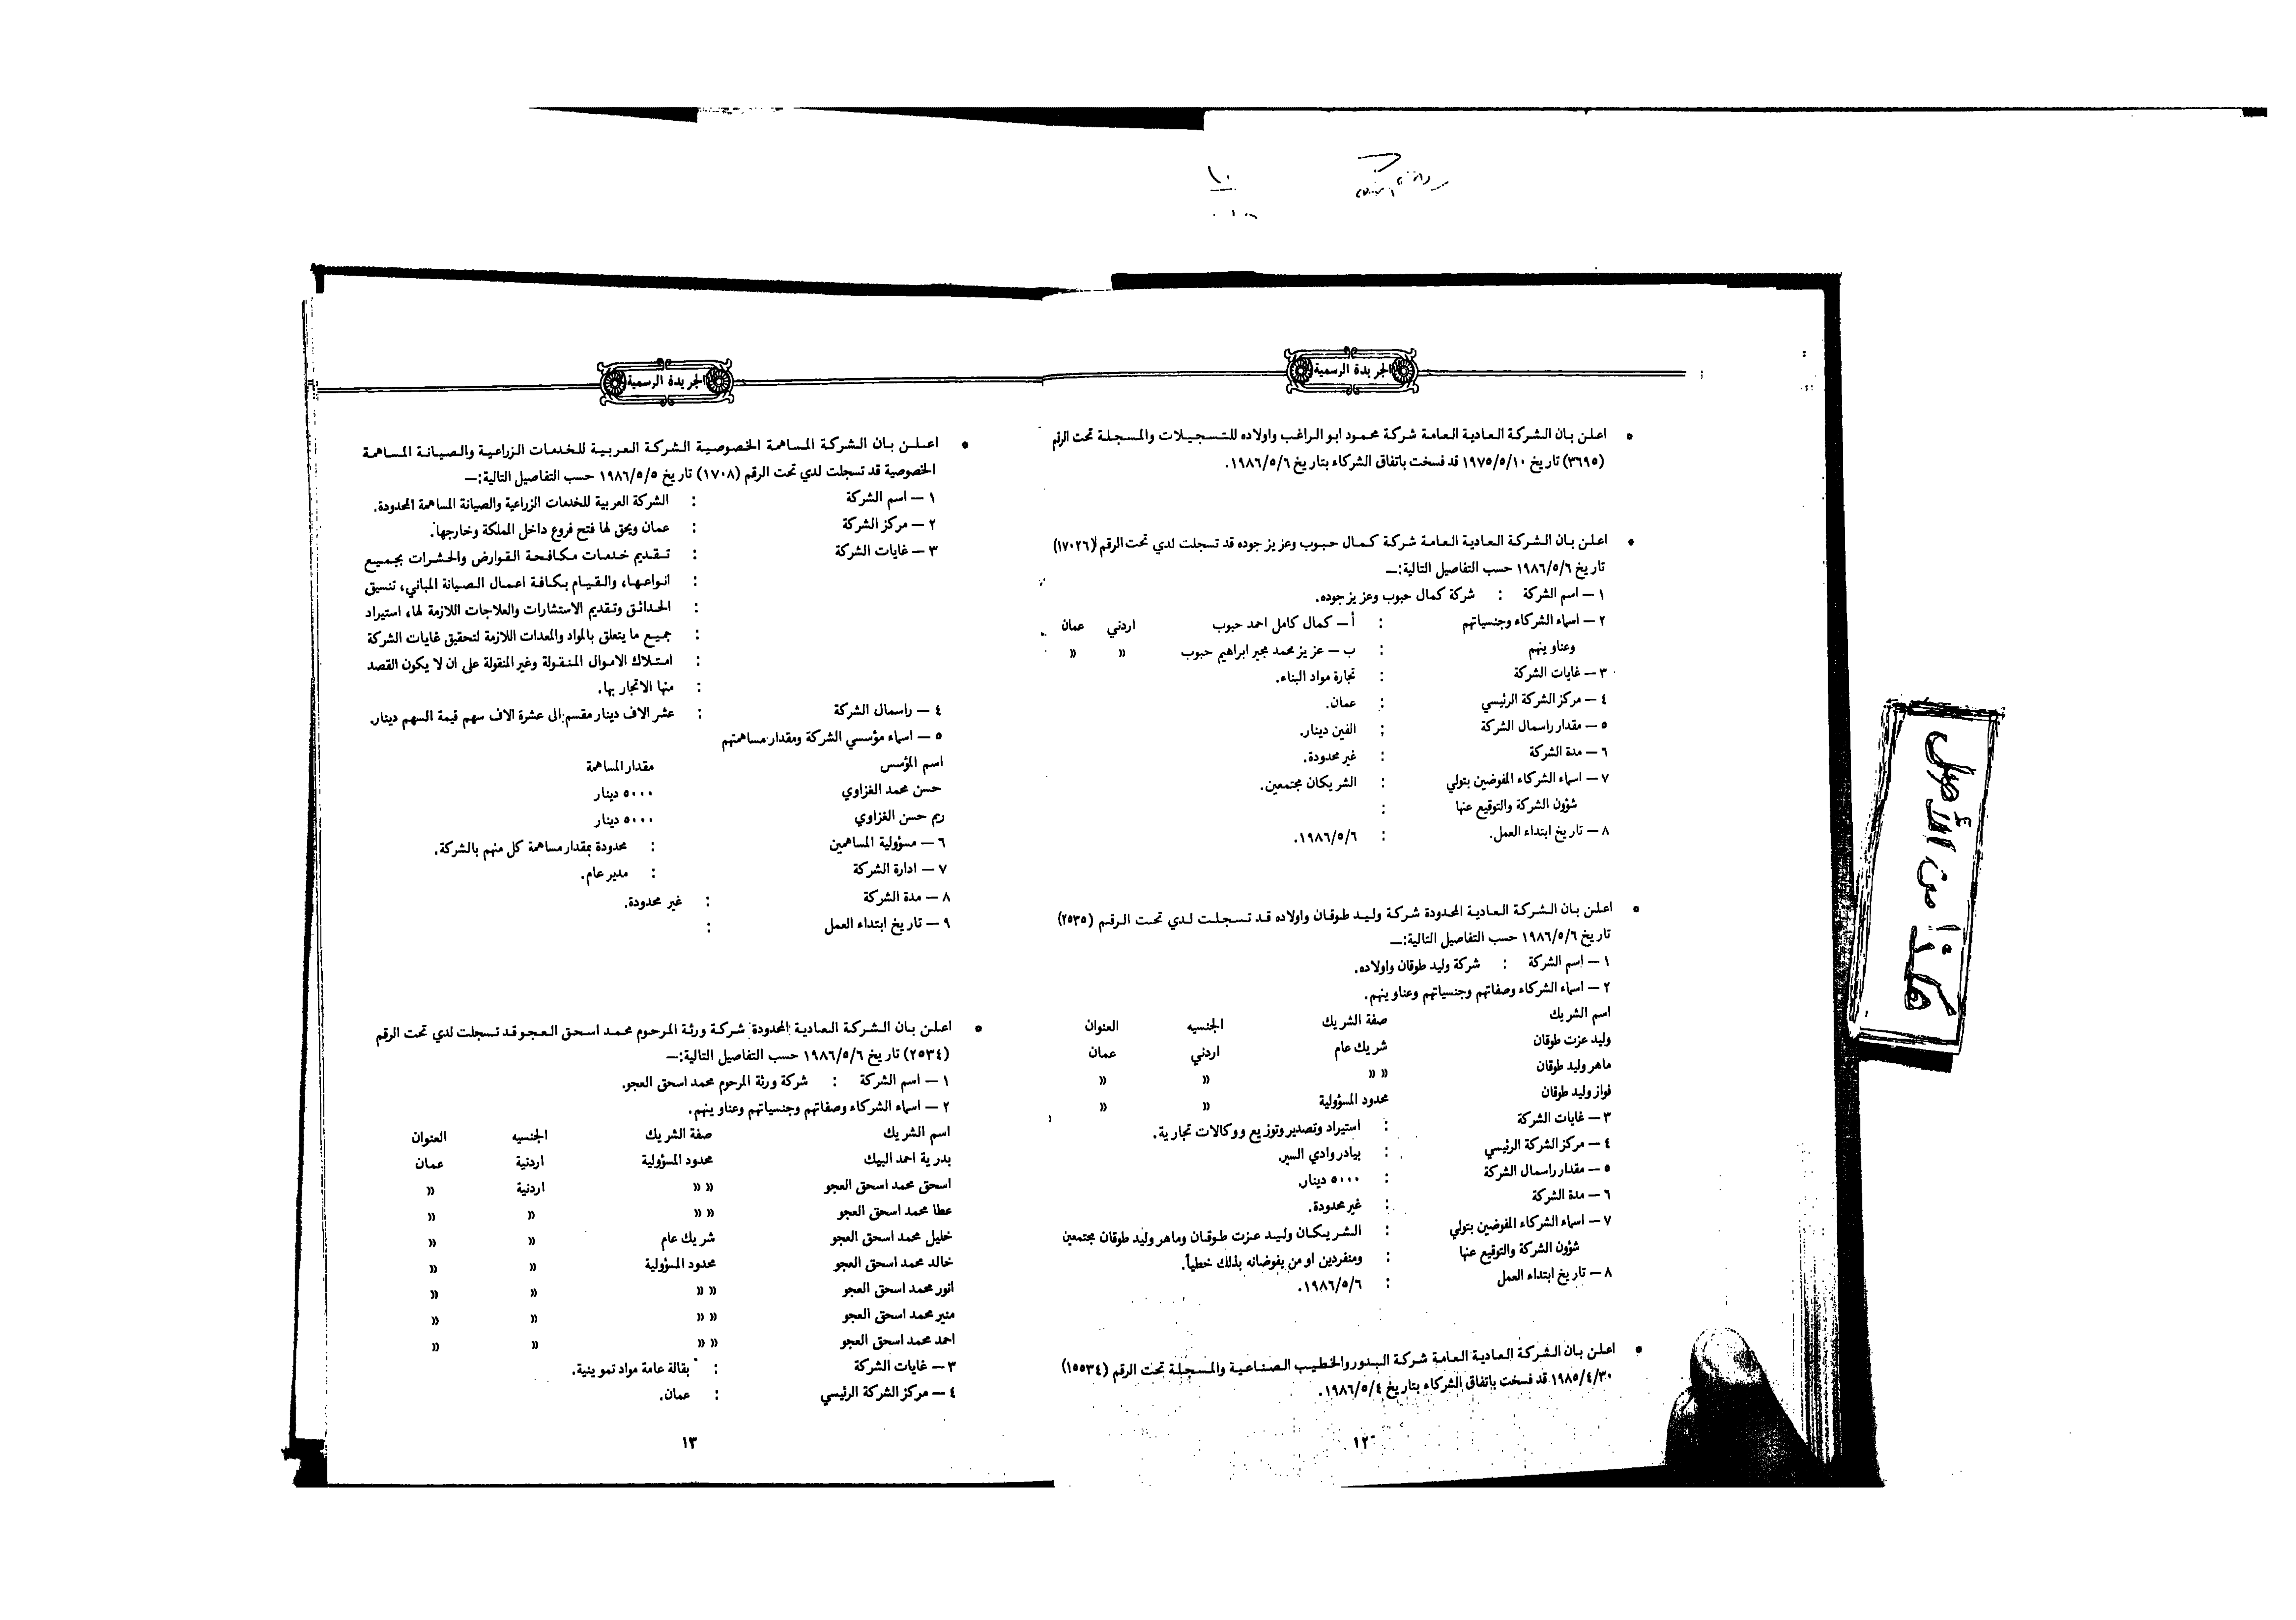 الجريدة الرسمية
• اعلن بان الشركة العادية العامة شركة محمود ابو الراغب واولاده للتسجيلات والمسجلة تحت الرقم
(٣٦٩٥) تاريخ ١٩٧٥/٥/١٠ قد فسخت باتفاق الشركاء بتاريخ ١٩٨٦/٥/٦.
• اعلن بان الشركة العادية العامة شركة كمال حبوب وعزيز جوده قد تسجلت لدي تحت الرقم (١٧٠٢٦)
تاريخ ١٩٨٦/٥/٦ حسب التفاصيل التالية:—
١ — اسم الشركة : شركة كمال حبوب وعزيز جوده.
٢ — اسماء الشركاء وجنسياتهم : أ — كمال كامل احمد حبوب اردني عمان
وعناوينهم : ب — عزيز محمد مجير ابراهيم حبوب » »
٣ — غايات الشركة : تجارة مواد البناء.
٤ — مركز الشركة الرئيسي : عمان.
٥ — مقدار راسمال الشركة : الفين دينار.
٦ — مدة الشركة : غير محدودة.
٧ — اسماء الشركاء المفوضين بتولي : الشريكان مجتمعين.
شؤون الشركة والتوقيع عنها :
٨ — تاريخ ابتداء العمل. : ١٩٨٦/٥/٦.
• اعلن بان الشركة العادية المحدودة شركة وليد طوقان واولاده قد تسجلت لدي تحت الرقم (٢٥٣٥)
تاريخ ١٩٨٦/٥/٦ حسب التفاصيل التالية:—
١ — اسم الشركة : شركة وليد طوقان واولاده.
٢ — اسماء الشركاء وصفاتهم وجنسياتهم وعناوينهم.
اسم الشريك صفة الشريك الجنسيه العنوان
وليد عزت طوقان شريك عام اردني عمان
ماهر وليد طوقان » » » »
فواز وليد طوقان محدود المسؤولية » »
٣ — غايات الشركة : استيراد وتصدير وتوزيع ووكالات تجارية.
٤ — مركز الشركة الرئيسي : بيادر وادي السير.
٥ — مقدار راسمال الشركة : ٥٠٠٠ دينار.
٦ — مدة الشركة : غير محدودة.
٧ — اسماء الشركاء المفوضين بتولي : الشريكان وليد عزت طوقان وماهر وليد طوقان مجتمعين
شؤون الشركة والتوقيع عنها : ومنفردين او من يفوضانه بذلك خطياً.
٨ — تاريخ ابتداء العمل : ١٩٨٦/٥/٦.
• اعلن بان الشركة العادية العامة شركة البدور والخطيب الصناعية والمسجلة تحت الرقم (١٥٥٣٤)
١٩٨٥/٤/٣٠ قد فسخت باتفاق الشركاء بتاريخ ١٩٨٦/٥/٤.
١٢
الجريدة الرسمية
• اعلن بان الشركة المساهمة الخصوصية الشركة العربية للخدمات الزراعية والصيانة المساهمة
الخصوصية قد تسجلت لدي تحت الرقم (١٧٠٨) تاريخ ١٩٨٦/٥/٥ حسب التفاصيل التالية:—
١ — اسم الشركة : الشركة العربية للخدمات الزراعية والصيانة المساهمة المحدودة.
٢ — مركز الشركة : عمان ويحق لها فتح فروع داخل المملكة وخارجها.
٣ — غايات الشركة : تقديم خدمات مكافحة القوارض والحشرات بجميع
: انواعها، والقيام بكافة اعمال الصيانة المباني، تنسيق
: الحدائق وتقديم الاستشارات والعلاجات اللازمة لها، استيراد
: جميع ما يتعلق بالمواد والمعدات اللازمة لتحقيق غايات الشركة
: امتلاك الاموال المنقولة وغير المنقولة على ان لا يكون القصد
: منها الاتجار بها.
٤ — راسمال الشركة : عشر الاف دينار مقسم الى عشرة الاف سهم قيمة السهم دينار.
٥ — اسماء مؤسسي الشركة ومقدار مساهمتهم
اسم المؤسس مقدار المساهمة
حسن محمد الغزاوي ٥٠٠٠ دينار
ريم حسن الغزاوي ٥٠٠٠ دينار
٦ — مسؤولية المساهمين : محدودة بمقدار مساهمة كل منهم بالشركة.
٧ — ادارة الشركة : مدير عام.
٨ — مدة الشركة : غير محدودة.
٩ — تاريخ ابتداء العمل :
• اعلن بان الشركة العادية المحدودة شركة ورثة المرحوم محمد اسحق العجو قد تسجلت لدي تحت الرقم
(٢٥٣٤) تاريخ ١٩٨٦/٥/٦ حسب التفاصيل التالية:—
١ — اسم الشركة : شركة ورثة المرحوم محمد اسحق العجو.
٢ — اسماء الشركاء وصفاتهم وجنسياتهم وعناوينهم.
اسم الشريك صفة الشريك الجنسيه العنوان
بدرية احمد البيك محدود المسؤولية اردنية عمان
اسحق محمد اسحق العجو » » اردنية »
عطا محمد اسحق العجو » » » »
خليل محمد اسحق العجو شريك عام » »
خالد محمد اسحق العجو محدود المسؤولية » »
انور محمد اسحق العجو » » » »
منير محمد اسحق العجو » » » »
احمد محمد اسحق العجو » » » »
٣ — غايات الشركة : بقالة عامة مواد تموينية.
٤ — مركز الشركة الرئيسي : عمان.
١٣
هكذا من الأصل